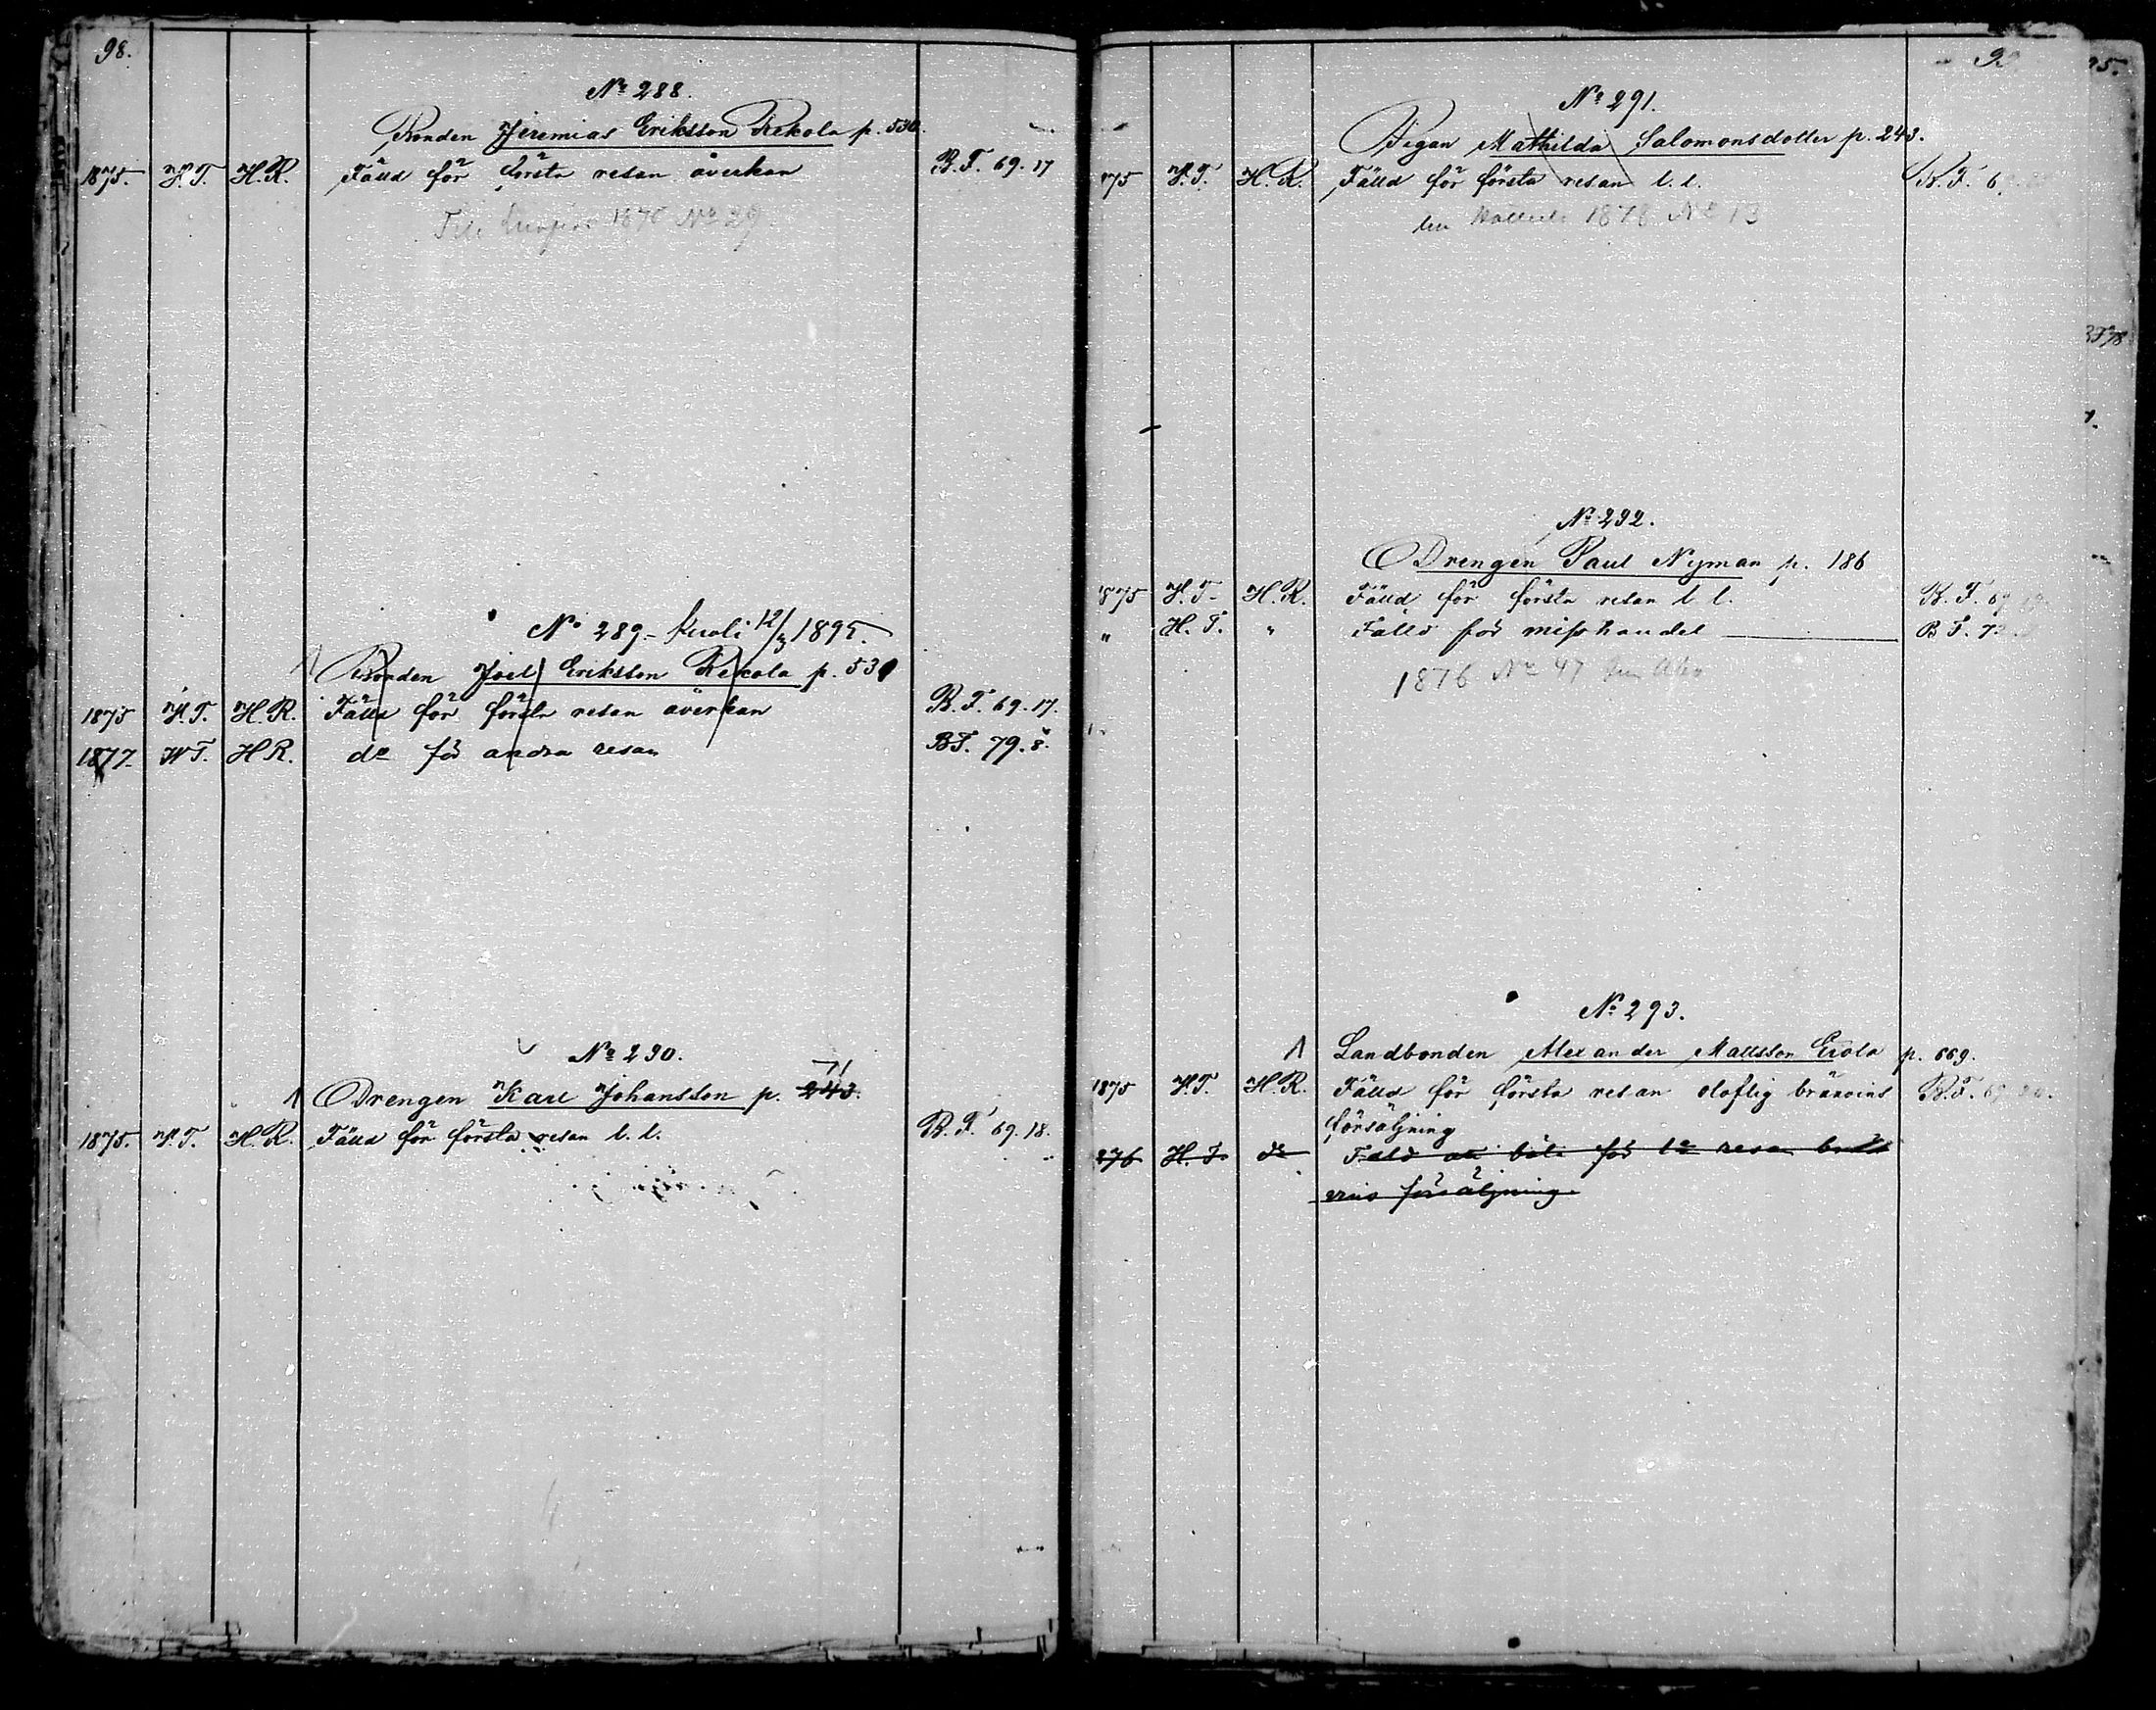 98.
No 288.
Bonden Jeremias Eriksson Rekola p. 530.
1875. H.T. H.R. Fälld för första resan åverkan B.T. 69.17
1876 No 29
No 289. kuoli 12/3 1895.
Bonden Joel Eriksson Rekola p. 531
1875 H.T. H.R. Fälld för första resan åverkan B.T. 69.17.
1877 W.T. H.R. do för andra resan B.T. 79.8.
No 290.
Drengen Karl Johansson p. 243. 71
1875. H.T. H.R. Fälld för första resan l.l. B.T. 69.18.
99
No 291.
Pigan Mathilda Salomonsdotter p. 243.
875 H.T. H.R. Fälld för första resan l.l. B.T.
1878 No 13
No 292.
Drengen Paul Nyman p. 186
1875 H.T. H.R. Fälld för första resan l.l. B.T. 69.19.
" H.T. " Fälld för misshandel B.T.
1876 No 47
No 293.
Landbonden Alexander Mattsson Erola p. 669.
1875 H.T. H.R. Fälld för första resan oloflig brännvins B.T. 69.20.
försäljning
876 H.T. do Fälld att böta för 1a resan bränn
vins försäljning